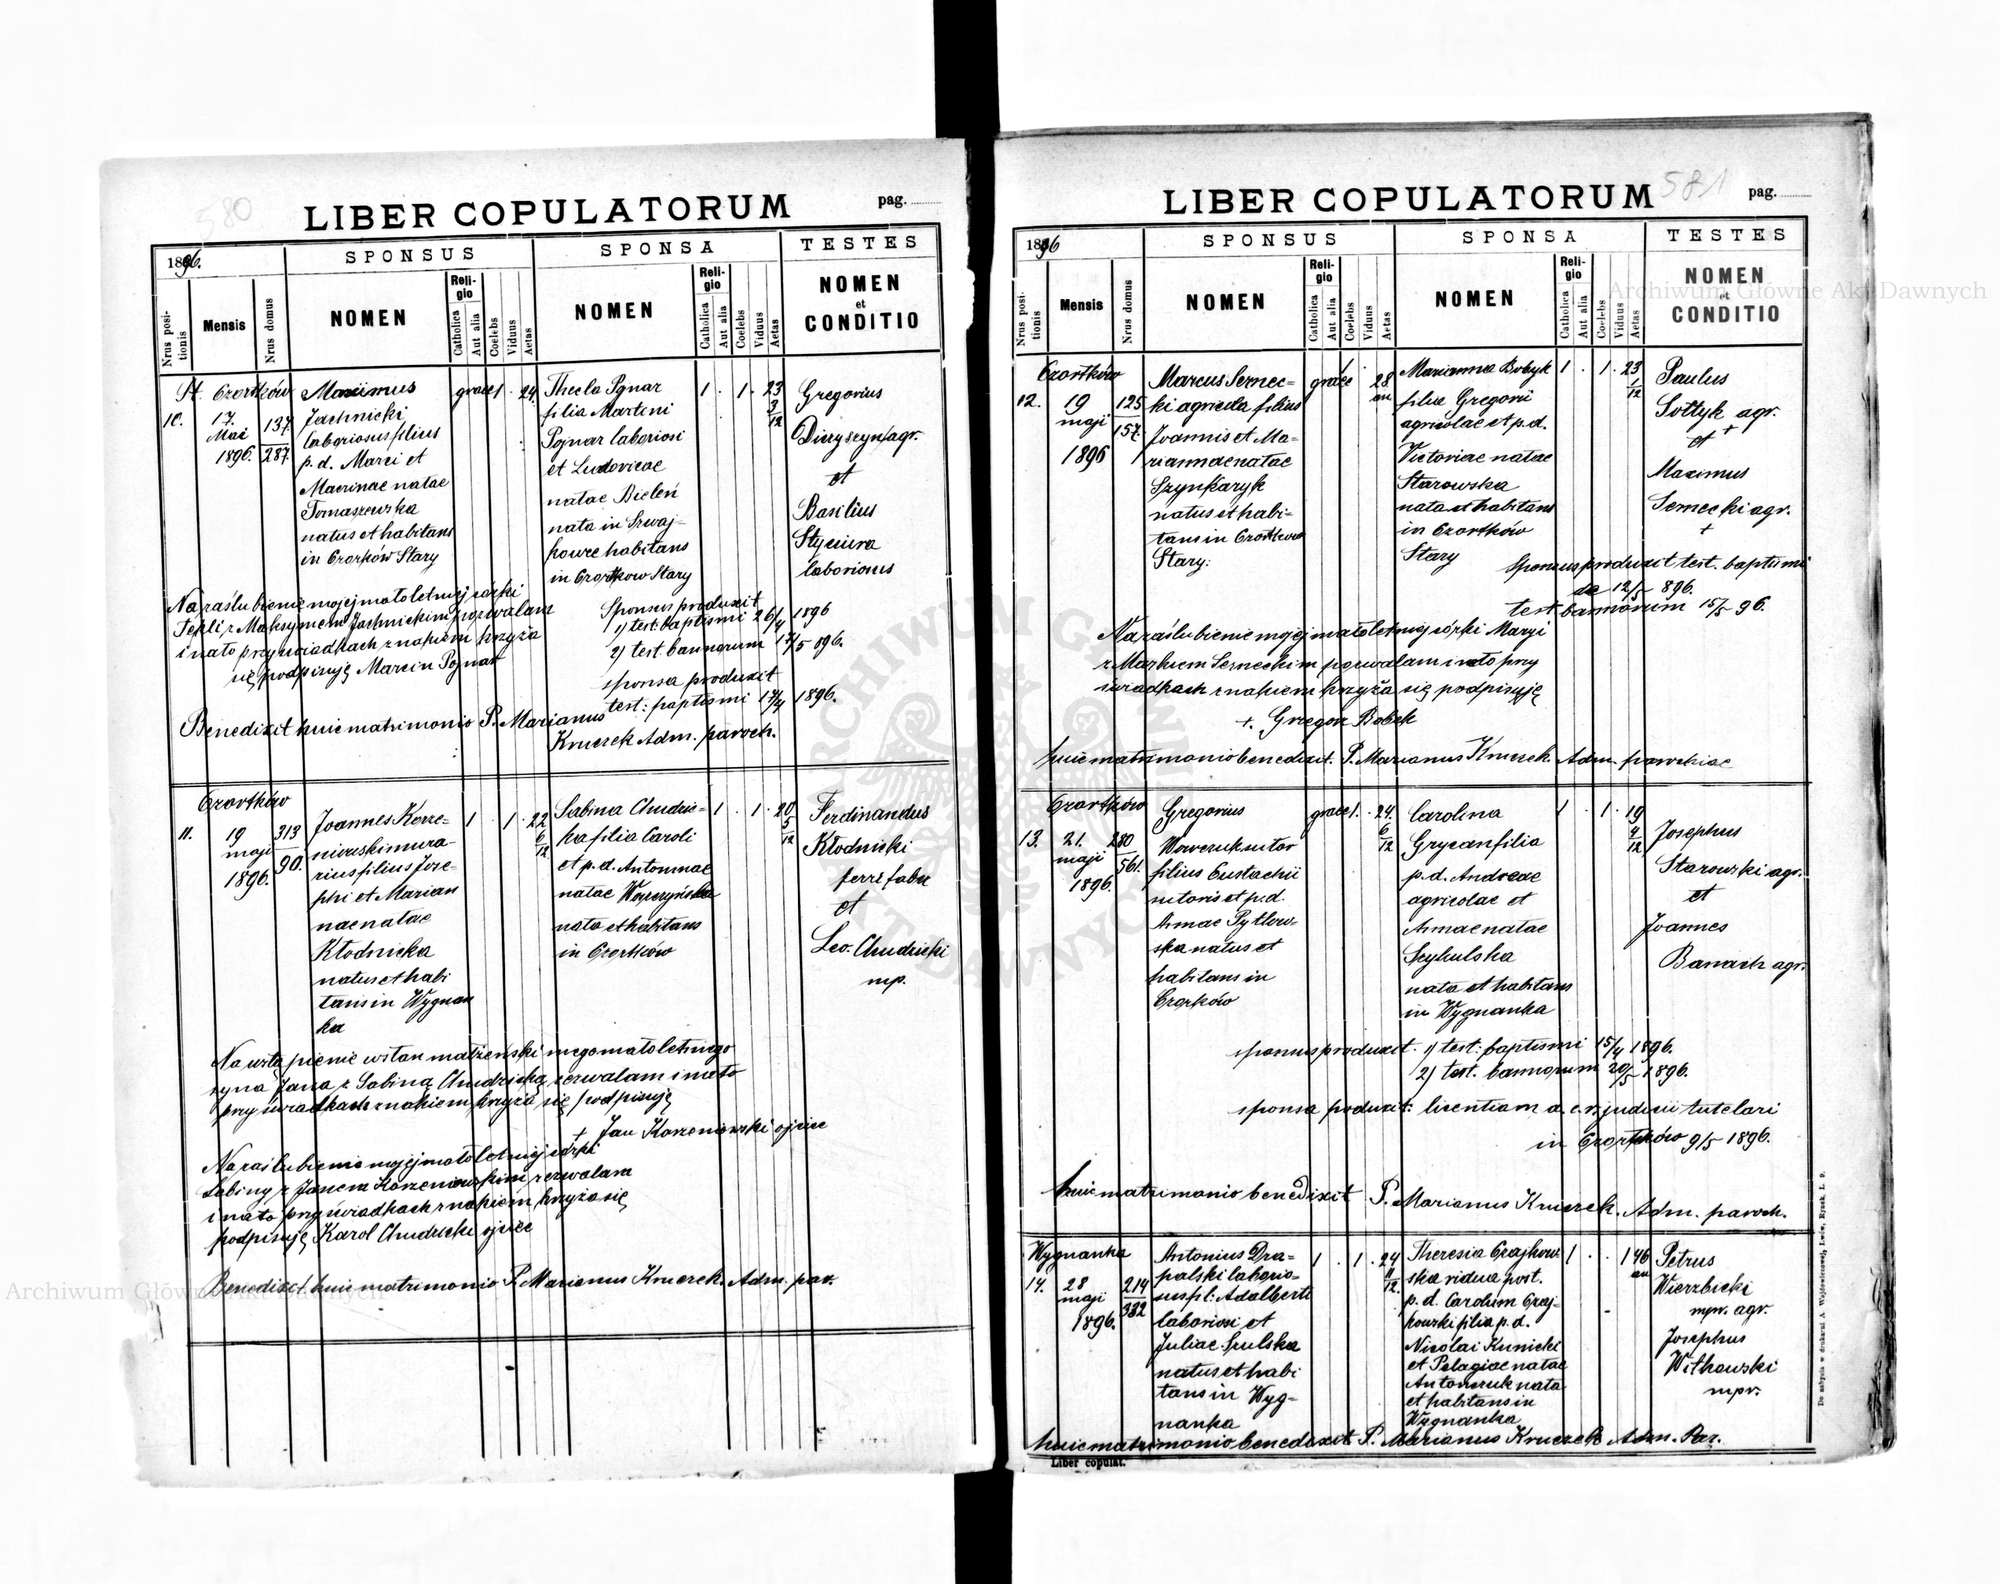 580
LIBER COPULATORUM
pag.
1896.
SPONSUS
SPONSA
TESTES
Nrus positionis
Mensis
Nrus domus
NOMEN
Religio
Catholica
Aut alia
Coelebs
Viduus
Aetas
NOMEN
Religio
Catholica
Aut alia
Coelebs
Viduus
Aetas
NOMEN
et
CONDITIO
St. Czortków
10.
17.
Mai
1896.
137
287.
Maximus
Jachnicki
laboriosus filius
p. d. Marci et
Macrinae natae
Tomaszewska
natus et habitans
in Czorków Stary
graec 1 . 24.
Thecla Pojnar
filia Martini
Pojnar laboriosi
et Ludovicae
natae Bieleń
nata in Szwaj-
powce habitans
in Czortkow Stary
1 . 1 . 23
3
12
Gregorius
agr.
et
Basilius
Styciura
laboriosus
Na zaślubienie mojej małoletniej córki
Tekli z Maksymem Jachnickim pozwalam
i na to przy świadkach znakiem krzyża
się podpisuję Marcin Pojnar
Sponsus produxit
1) test. baptismi 26/4 1896
2) test. bannorum 17/5 896.
sponsa produxit
test: baptismi 17/4 1896.
Benedixit huic matrimonio P. Marianus
Kruczek Adm. paroch.
Czortków
11.
19
maji
1896.
313
90.
Joannes Korze-
niowski mura-
rius filius Jose-
phi et Marian
nae natae
Kłodnicka
natus et habi
tans in Wygnan
ka
1 . 1 . 22
6
12
Sabina Chudzic-
ka filia Caroli
et p. d. Antoninae
natae
nata et habitans
in Czortków
1 . 1 . 20
5
12
Ferdinandus
Kłodnicki
ferrifaber
et
Leo. Chudzicki
mp.
Na wstąpienie w stan małżeński mego małoletniego
syna Jana z Sabiną Chudzicką zezwalam i na to
przy świadkach znakiem krzyża się podpisuję
+ Jan Korzeniowski ojciec
Na zaślubienie mojej małoletniej córki
Sabiny z Janem Korzeniowskim zezwalam
i na to przy świadkach znakiem krzyża się
podpisuję Karol Chudzicki ojciec
Benedixit huic matrimonio P. Marianus Kruczek. Adm. par.
581
LIBER COPULATORUM
pag.
1896
SPONSUS
SPONSA
TESTES
Nrus positionis
Mensis
Nrus domus
NOMEN
Religio
Catholica
Aut alia
Coelebs
Viduus
Aetas
NOMEN
Religio
Catholica
Aut alia
Coelebs
Viduus
Aetas
NOMEN
et
CONDITIO
Czortków
12.
19
maji
1896
125
157.
Marcus Sernec-
ki agricola filius
Joannis et Ma-
riannae natae
Szynkaryk
natus et habi-
tans in Czortkow
Stary.
graec 1 28
an
Marianna Bobyk
filia Gregorii
agricolae et p. d.
Victoriae natae
Starowska
nata et habitans
in Czortków
Stary
1 . 1 . 23
1
12
Paulus
Sołtyk agr.
+
et
Maximus
Sernecki agr.
+
Sponsus produxit test. baptismi
de 12/5 896.
test. bannorum 15/5 96.
Na zaślubienie mojej małoletniej córki Maryi
z Markiem Serneckim pozwalam i na to przy
świadkach znakiem krzyża się podpisuję
+. Grzegorz Bobek
huic matrimonio benedixit. P. Marianus Kruczek. Adm. parochiae
Czortków
13.
21.
maji
1896.
280
561.
Gregorius
Wowczuk sutor
filius Eustachii
sutoris et p. d.
Annae Pytlow-
ska natus et
habitans in
Czorków
graec 1. . 24.
6
12
Carolina
Grycan filia
p. d. Andreae
agricolae et
Annae natae
Szyhulska
nata et habitans
in Wygnanka
1 . 1 . 19
4
12
Josephus
Starowski agr.
et
Joannes
Banach agr.
sponsus produxit. 1) test: baptismi 15/4 1896.
2) test. bannorum 20/5 1896.
sponsa produxit: licentiam a. c. r. judicii tutelari
in Czortków 9/5 1896.
huic matrimonio benedixit P. Marianus Kruczek. Adm. paroch.
Wygnanka
14.
28
maji
1896.
214
332
Antonius Dra-
palski laborio-
sus fil: Adalberti
laboriosi et
Juliae Spulska
natus et habi
tans in Wyg-
nanka
1 . 1 . 24
11
12.
Theresia Czajkow
ska vidua post.
p. d. Carolum Czaj-
kowski filia p. d.
Nicolai Kunicki
et Pelagiae natae
Antonczuk nata
et habitans in
Wygnanka
1 . . 1 46
an
Petrus
Wierzbicki
mpr. agr.
Josephus
Witkowski
mpr.
huic matrimonio benedixit P. Marianus Kruczek Adm. Par.
Liber copulat.
Archiwum Główne Akt Dawnych
Archiwum Główne Akt Dawnych
ARCHIWUM GŁÓWNE AKT DAWNYCH